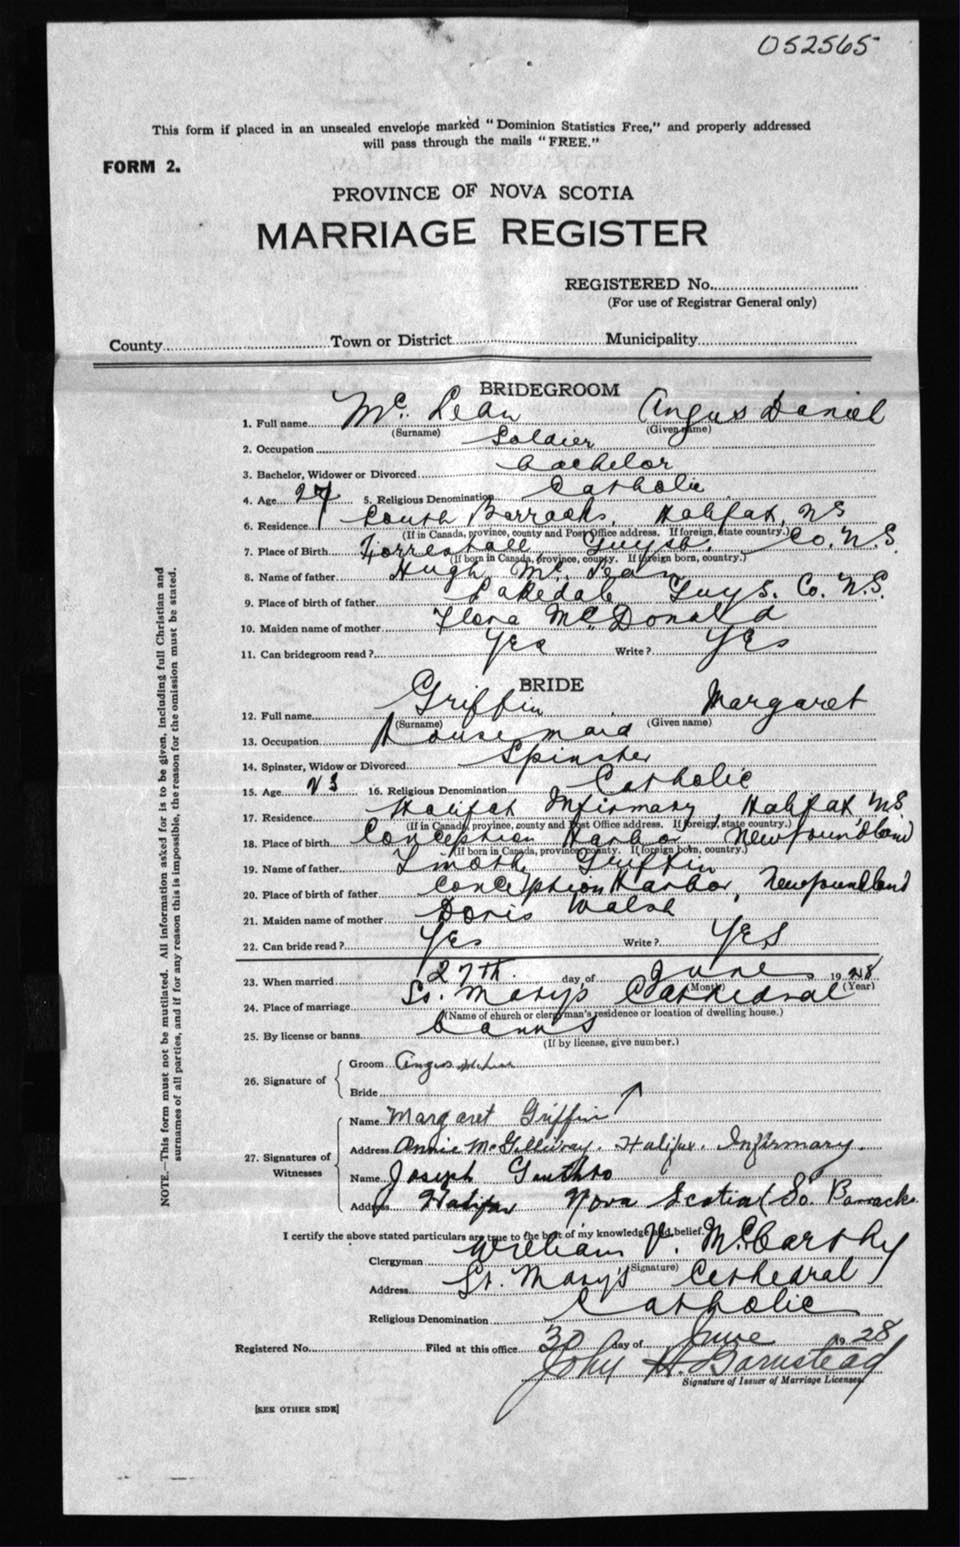 052565
This form if placed in an unsealed envelope marked "Dominion Statistics Free," and properly addressed
will pass through the mails "FREE."
FORM 2.
PROVINCE OF NOVA SCOTIA
MARRIAGE REGISTER
REGISTERED No.
(For use of Registrar General only)
County Town or District Municipality
BRIDEGROOM
1. Full name Mc Lean Angus Daniel
(Surname) (Given name)
2. Occupation Soldier
3. Bachelor, Widower or Divorced bachelor
4. Age 27 5. Religious Denomination Catholic
6. Residence South Barracks, Halifax, NS
(If in Canada, province, county and Post Office address. If foreign, state country.)
7. Place of Birth Guysb. Co. N.S.
(If born in Canada, province, county. If foreign born, country.)
8. Name of father Hugh Mc Lean
9. Place of birth of father Lakedale Guys. Co. N.S.
10. Maiden name of mother Flora McDonald
11. Can bridegroom read? Yes Write? Yes
BRIDE
12. Full name Griffin Margaret
(Surname) (Given name)
13. Occupation Housemaid
14. Spinster, Widow or Divorced Spinster
15. Age 23 16. Religious Denomination Catholic
17. Residence Halifax Infirmary, Halifax NS
(If in Canada, province, county and Post Office address. If foreign, state country.)
18. Place of birth Conception Harbor Newfoundland
(If born in Canada, province, county. If foreign born, country.)
19. Name of father Griffin
20. Place of birth of father Conception Harbor, Newfoundland
21. Maiden name of mother Doris Walsh
22. Can bride read? Yes Write? YES
23. When married 27th day of June 1928
(Month) (Year)
24. Place of marriage St. Marys Cathedral
(Name of church or clergyman's residence or location of dwelling house.)
25. By license or banns banns
(If by license, give number.)
26. Signature of
Groom Angus McLean
Bride
27. Signatures of Witnesses
Name Margaret Griffin
Address Annie McGillivray. Halifax. Infirmary.
Name Joseph Gouthro
Address Halifax Nova Scotia (So. Barracks
I certify the above stated particulars are true to the best of my knowledge and belief.
Clergyman William V. McCarthy
(Signature)
Address St. Mary's Cathedral
Religious Denomination Catholic
Registered No. Filed at this office 30 day of June 1928
John H. Barnstead
Signature of Issuer of Marriage Licenses
[SEE OTHER SIDE]
NOTE.—This form must not be mutilated. All information asked for is to be given, including full Christian and
surnames of all parties, and if for any reason this is impossible, the reason for the omission must be stated.